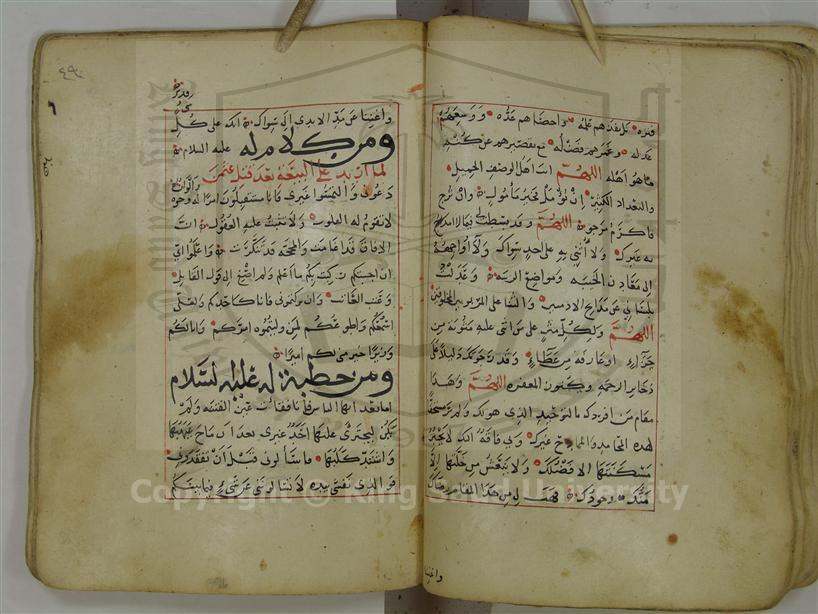 قدره كل بعدهم علمه واحصاهم عده ووسعهم
عدله وغمرهم فضله مع تقصيرهم عن كنه
ما هو اهله اللهم انت اهل الوصف الجميل
والتعداد الكثير ان تؤمل فخير مأمول وان ترج
فاكرم مرجو اللهم وقد بسطت فيما لا امدح
به غيرك ولا اثني به على احد سواك ولا اوجهه
الى معادن الخيبه ومواضع الريبه وعدلت
بلساني عن مدايح الادميين والثنا على المربوبين المخلوقين
اللهم ولكل مثن على من اثنى عليه مثوبه من
جزاء او عارفه من عطاء وقد رجوتك دليلا على
ذخاير الرحمه وكنوز المغفره اللهم وهذا
مقام من افردك بالتوحيد الذي هو لك ولم ير مستحقا
لهذه المحامد والممادح غيرك وبي فاقه اليك لا يجبر
مسكنتها الا فضلك ولا ينعش من خلتها الا
منك وجودك فهب لي من هذا المقام رضاك
واغننا
٤٩
٦
واغننا عن مد الايدي الى سواك انك على كل
ومن كلام له عليه السلام
لما اريد على البيعة بعد قتل عثمن
دعوني والتمسوا غيري فانا مستقبلون امرا له وجوه والوان
لا تقوم له القلوب ولا تثبت عليه العقول وان
الافاق قد اغامت والمحجه قد تنكرت واعلموا اني
ان اجبتكم ركبت بكم ما اعلم ولم اصغ الى قول القايل
وعتب العاتب وان تركتموني فانا كاحدكم ولعلي
اسمعكم واطوعكم لمن وليتموه امركم وانا لكم
وزيرا خير مني لكم اميرا
ومن خطبة له عليه السلام
اما بعد ايها الناس فانا فقأت عين الفتنه ولم
يكن ليجترئ عليها احد غيري بعد ان ماج غيهبها
واشتد كلبها فاسألوني قبل ان تفقدوني
فوالذي نفسي بيده لا تسالونني عن شيء فيما بينكم
Copyright © King Saud University